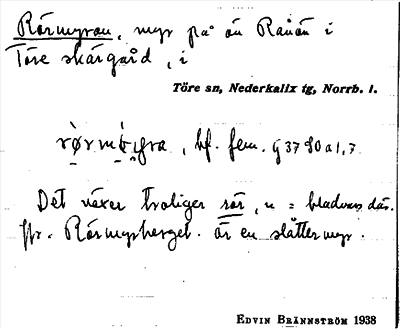 Rörmyran, myr på ön Rånön i
Töre skärgård, i
Töre sn, Nederkalix tg, Norrb. l.
bf. fem. § 37
Det växer troligen rör, n = bladvass där.
Jfr. Rörmyrberget. är en slåttermyr.
EDVIN BRÄNNSTRÖM 1938